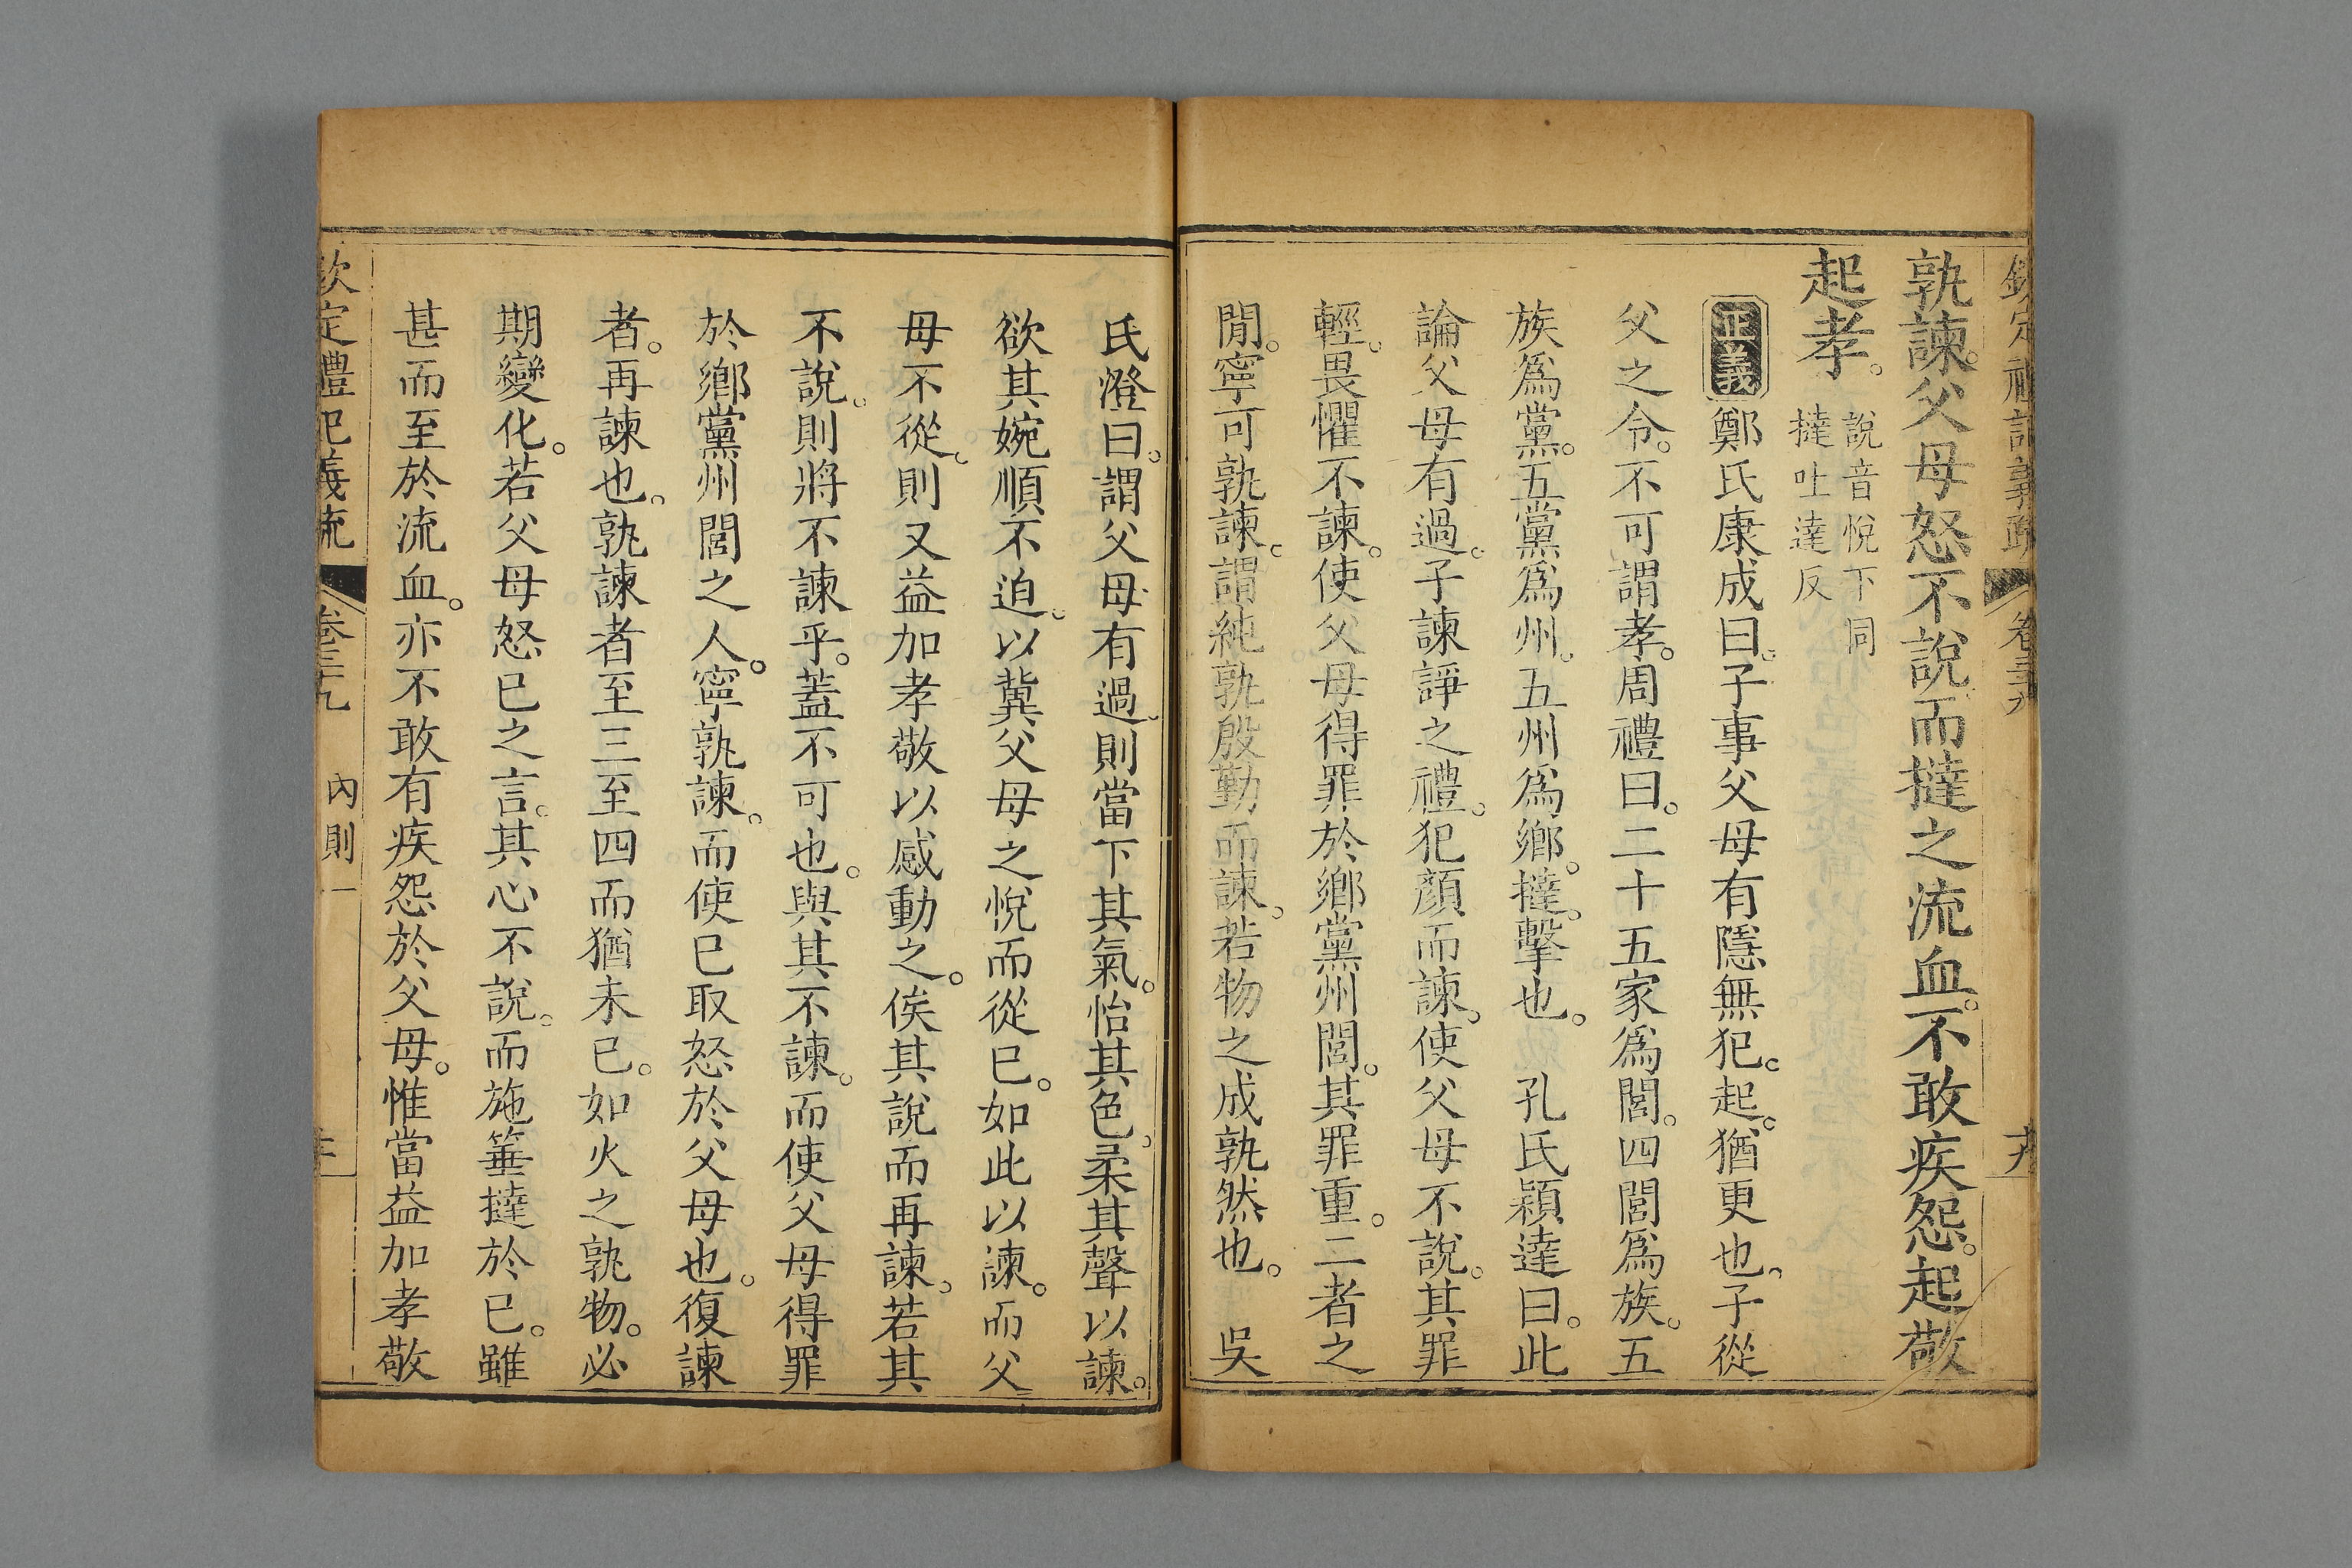 欽定禮記義疏 卷三十九 十九
孰諫。父母怒不說而撻之流血。不敢疾怨。起敬
起孝。說音悅下同
撻吐達反
正義 鄭氏康成曰。子事父母有隱無犯。起。猶更也。子從
父之令。不可謂孝。周禮曰。二十五家爲閭。四閭爲族。五
族爲黨。五黨爲州。五州爲鄉。撻。擊也。 孔氏穎達曰。此
論父母有過。子諫諍之禮。犯顏而諫。使父母不說。其罪
輕。畏懼不諫。使父母得罪於鄉黨州閭。其罪重。二者之
閒。寧可孰諫。謂純孰殷勤而諫。若物之成孰然也。 吳
氏澄曰。謂父母有過。則當下其氣。怡其色。柔其聲以諫。
欲其婉順不迫。以冀父母之悅而從已。如此以諫。而父
母不從。則又益加孝敬以感動之。俟其說而再諫。若其
不說。則將不諫乎。蓋不可也。與其不諫。而使父母得罪
於鄉黨州閭之人。寧孰諫。而使已取怒於父母也。復諫
者。再諫也。孰諫者至三至四而猶未已。如火之孰物。必
期變化。若父母怒已之言。其心不說。而施箠撻於已。雖
甚而至於流血。亦不敢有疾怨於父母。惟當益加孝敬
欽定禮記義疏 卷三十九 內則